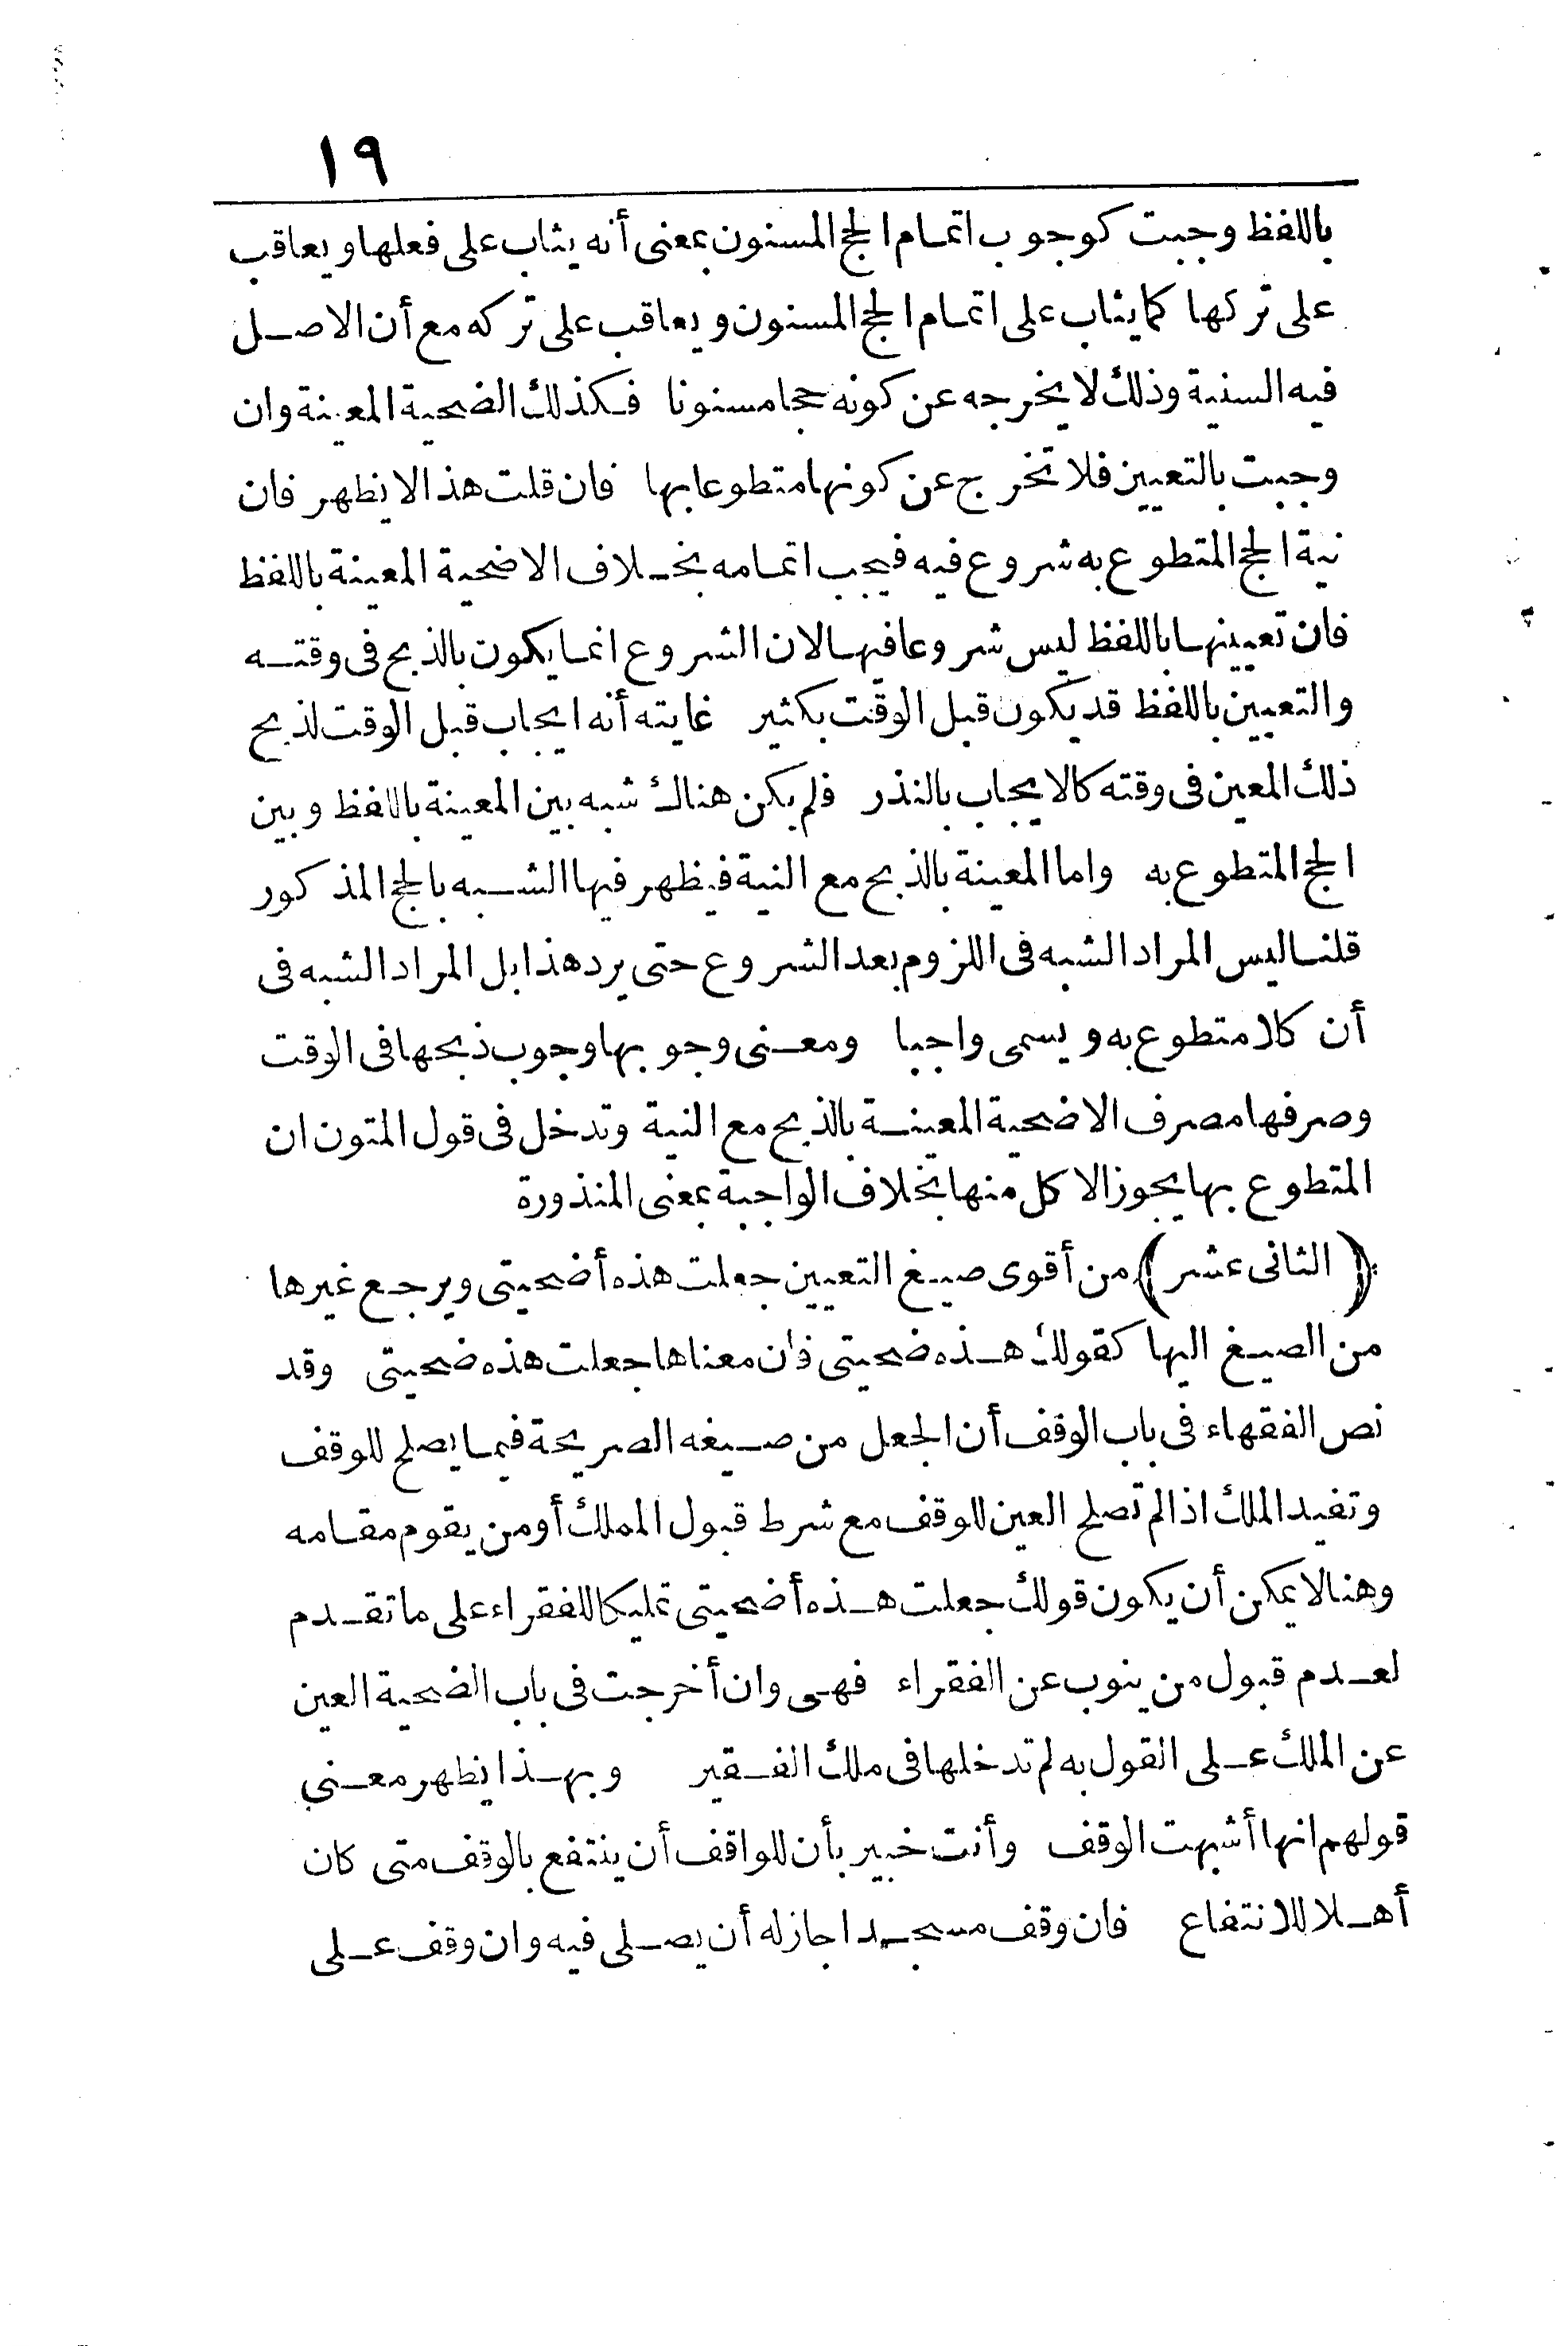 ١٩
باللفظ وجبت كوجوب اتمام الحج المسنون بمعنى أنه يثاب على فعلها ويعاقب
على تركها كما يثاب على اتمام الحج المسنون ويعاقب على تركه مع أن الاصل
فيه السنية وذلك لا يخرجه عن كونه حجا مسنونا فكذلك الضحية المعينة وان
وجبت بالتعيين فلا تخرج عن كونها متطوعا بها فان قلت هذا لا يظهر فان
نية الحج المتطوع به شروع فيه فيجب اتمامه بخلاف الاضحية المعينة باللفظ
فان تعيينها باللفظ ليس شروعا فيها لان الشروع انما يكون بالذبح فى وقته
والتعيين باللفظ قد يكون قبل الوقت بكثير غايته أنه ايجاب قبل الوقت لذبح
ذلك المعين فى وقته كالايجاب بالنذر فلم يكن هناك شبه بين المعينة باللفظ وبين
الحج المتطوع به واما المعينة بالذبح مع النية فيظهر فيها الشبه بالحج المذكور
قلنا ليس المراد الشبه فى اللزوم بعد الشروع حتى يرد هذا بل المراد الشبه فى
أن كلا متطوع به ويسمى واجبا ومعنى وجوبها وجوب ذبحها فى الوقت
وصرفها مصرف الاضحية المعينة بالذبح مع النية وتدخل فى قول المتون ان
المتطوع بها يجوز الاكل منها بخلاف الواجبة بمعنى المنذورة
(الثانى عشر) من أقوى صيغ التعيين جعلت هذه أضحيتى ويرجع غيرها
من الصيغ اليها كقولك هذه ضحيتى فان معناها جعلت هذه ضحيتى وقد
نص الفقهاء فى باب الوقف أن الجعل من صيغه الصريحة فيما يصلح للوقف
وتفيد الملك اذا لم تصلح العين للوقف مع شرط قبول المملك أو من يقوم مقامه
وهنا لا يمكن أن يكون قولك جعلت هذه أضحيتى تمليكا للفقراء على ما تقدم
لعدم قبول من ينوب عن الفقراء فهى وان أخرجت فى باب الضحية العين
عن الملك على القول به لم تدخلها فى ملك الفقير وبهذا يظهر معنى
قولهم انها أشبهت الوقف وأنت خبير بأن للواقف أن ينتفع بالوقف متى كان
أهلا للانتفاع فان وقف مسجدا جاز له أن يصلى فيه وان وقف على